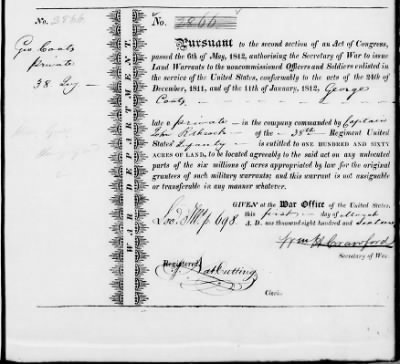 No. 2866
Geo. Coats
Private
38 Inf
WAR DEPARTMENT
No. 2866
Pursuant to the second section of an Act of Congress,
passed the 6th of May, 1812, authorising the Secretary of War to issue
Land Warrants to the noncommissioned Officers and Soldiers enlisted in
the service of the United States, conformably to the acts of the 24th of
December, 1811, and of the 11th of January, 1812, George
Coats
late a private in a company commanded by Captain
John of the 38th Regiment United
States' Infantry is entitled to ONE HUNDRED AND SIXTY
ACRES OF LAND, to be located agreeably to the said act on any unlocated
parts of the six millions of acres appropriated by law for the original
grantees of such military warrants; and this warrant is not assignable
or transferable in any manner whatever.
GIVEN at the War Office of the United States,
this first day of March
A. D. one thousand eight hundred and sixteen
698.
Wm H Crawford
Secretary of War.
Registered
Nat Cutting
Clerk